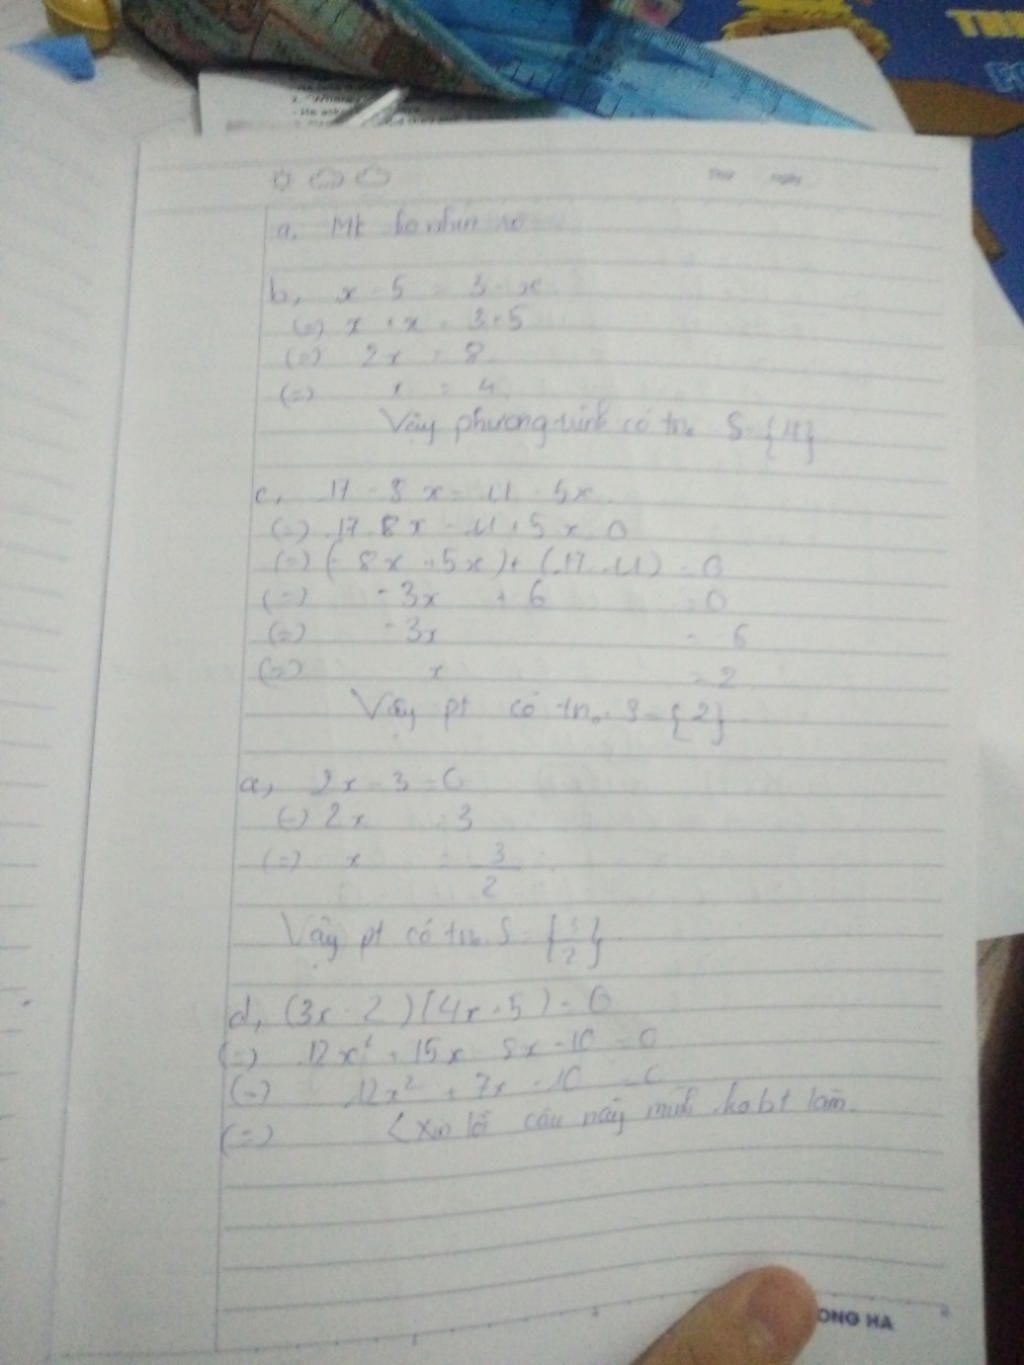 Thứ Ngày
a. Mk ko nhìn rõ
b, x - 5 = 3 - x
(=) x + x = 3 + 5
(=) 2x = 8
(=) x = 4
Vậy phương trình có tn. S = {4}
c, 17 - 8x = 11 - 5x
(=) 17 - 8x - 11 + 5x = 0
(=) (- 8x + 5x) + (17 - 11) = 0
(=) - 3x + 6 = 0
(=) - 3x = - 6
(=) x = 2
Vậy pt có tn. S = {2}
a, 2x - 3 = 0
(=) 2x = 3
(=) x = 3/2
Vậy pt có tn. S = {3/2}
d, (3x - 2)(4x + 5) = 0
(=) 12x² + 15x - 8x - 10 = 0
(=) 12x² + 7x - 10 = 0
(=) (Xin lỗi câu này mình ko bt làm.
ONG HA